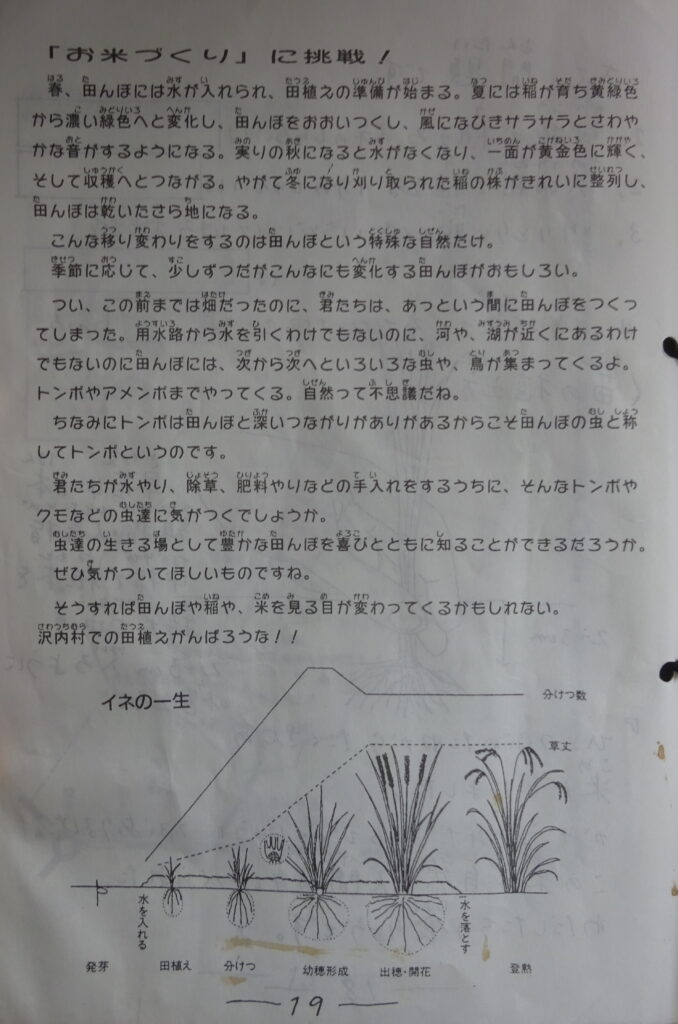 「お米づくり」に挑戦！
春、田んぼには水が入れられ、田植えの準備が始まる。夏には稲が育ち黄緑色
から濃い緑色へと変化し、田んぼをおおいつくし、風になびきサラサラとさわや
かな音がするようになる。実りの秋になると水がなくなり、一面が黄金色に輝く、
そして収穫へとつながる。やがて冬になり刈り取られた稲の株がきれいに整列し、
田んぼは乾いたさら地になる。
こんな移り変わりをするのは田んぼという特殊な自然だけ。
季節に応じて、少しずつだがこんなにも変化する田んぼがおもしろい。
つい、この前までは畑だったのに、君たちは、あっという間に田んぼをつくっ
てしまった。用水路から水を引くわけでもないのに、河や、湖が近くにあるわけ
でもないのに田んぼには、次から次へといろいろな虫や、鳥が集まってくるよ。
トンボやアメンボまでやってくる。自然って不思議だね。
ちなみにトンボは田んぼと深いつながりがありがあるからこそ田んぼの虫と称
してトンボというのです。
君たちが水やり、除草、肥料やりなどの手入れをするうちに、そんなトンボや
クモなどの虫達に気がつくでしょうか。
虫達の生きる場として豊かな田んぼを喜びとともに知ることができるだろうか。
ぜひ気がついてほしいものですね。
そうすれば田んぼや稲や、米を見る目が変わってくるかもしれない。
沢内村での田植えがんばろうな！！
イネの一生
分けつ数
草丈
水を入れる
水を落とす
発芽 田植え 分けつ 幼穂形成 出穂・開花 登熟
19